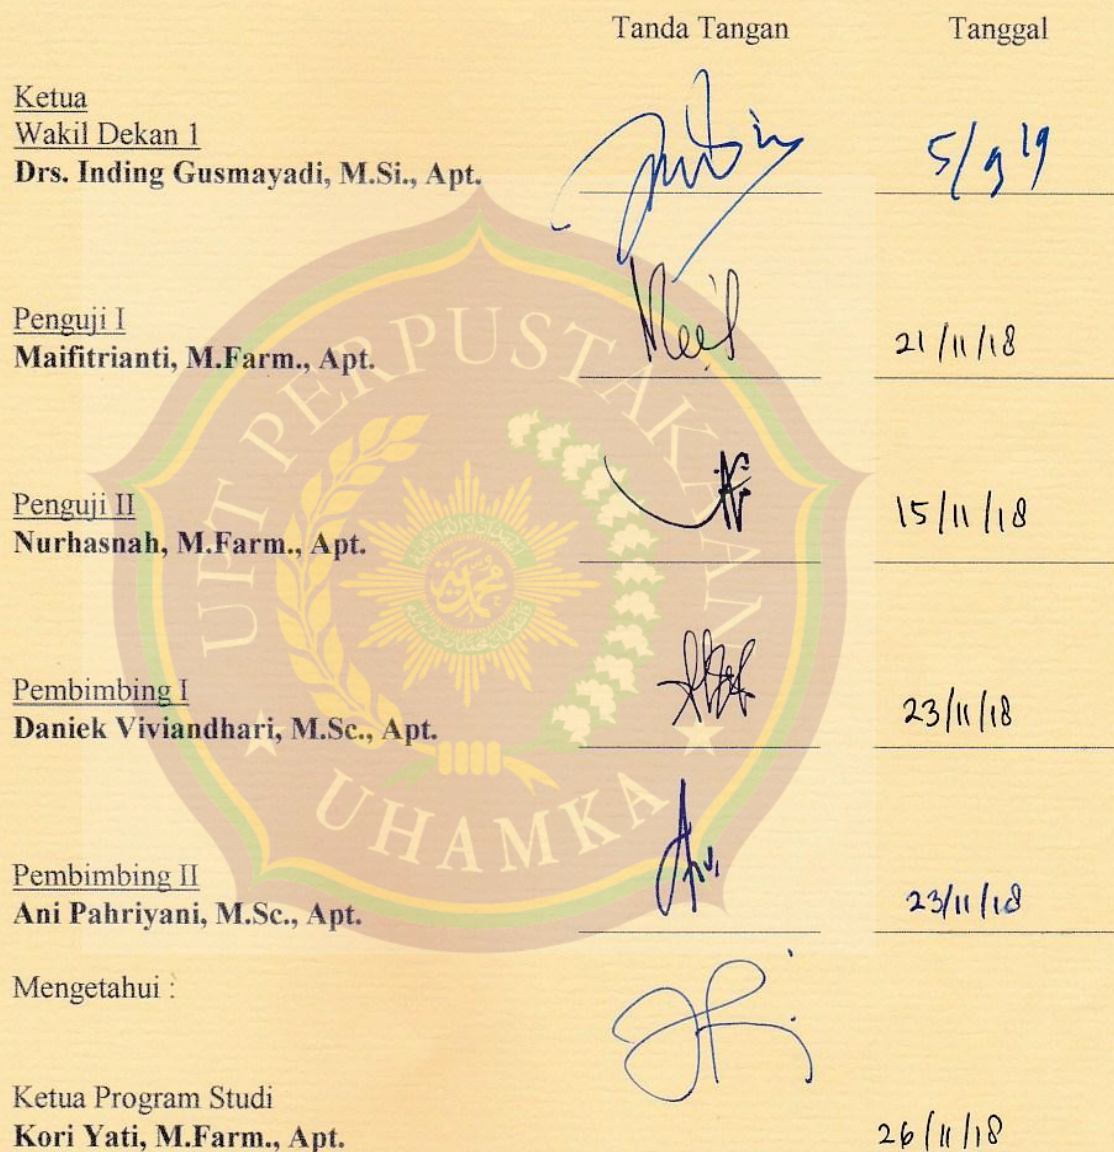 Tanda Tangan Tanggal
Ketua
Wakil Dekan 1
Drs. Inding Gusmayadi, M.Si., Apt. 5/9 19
Penguji I
Maifitrianti, M.Farm., Apt. 21/11/18
Penguji II
Nurhasnah, M.Farm., Apt. 15/11/18
Pembimbing I
Daniek Viviandhari, M.Sc., Apt. 23/11/18
Pembimbing II
Ani Pahriyani, M.Sc., Apt. 23/11/18
Mengetahui :
Ketua Program Studi
Kori Yati, M.Farm., Apt. 26/11/18
UPT PERPUSTAKAAN
UHAMKA